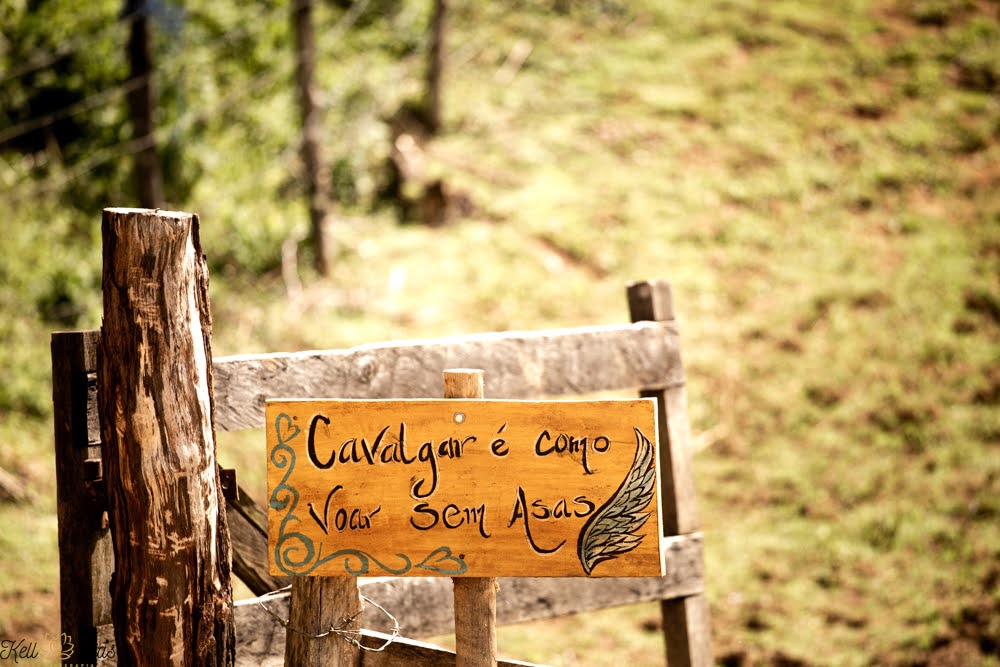 Cavalgar é como
Voar sem Asas
Kell